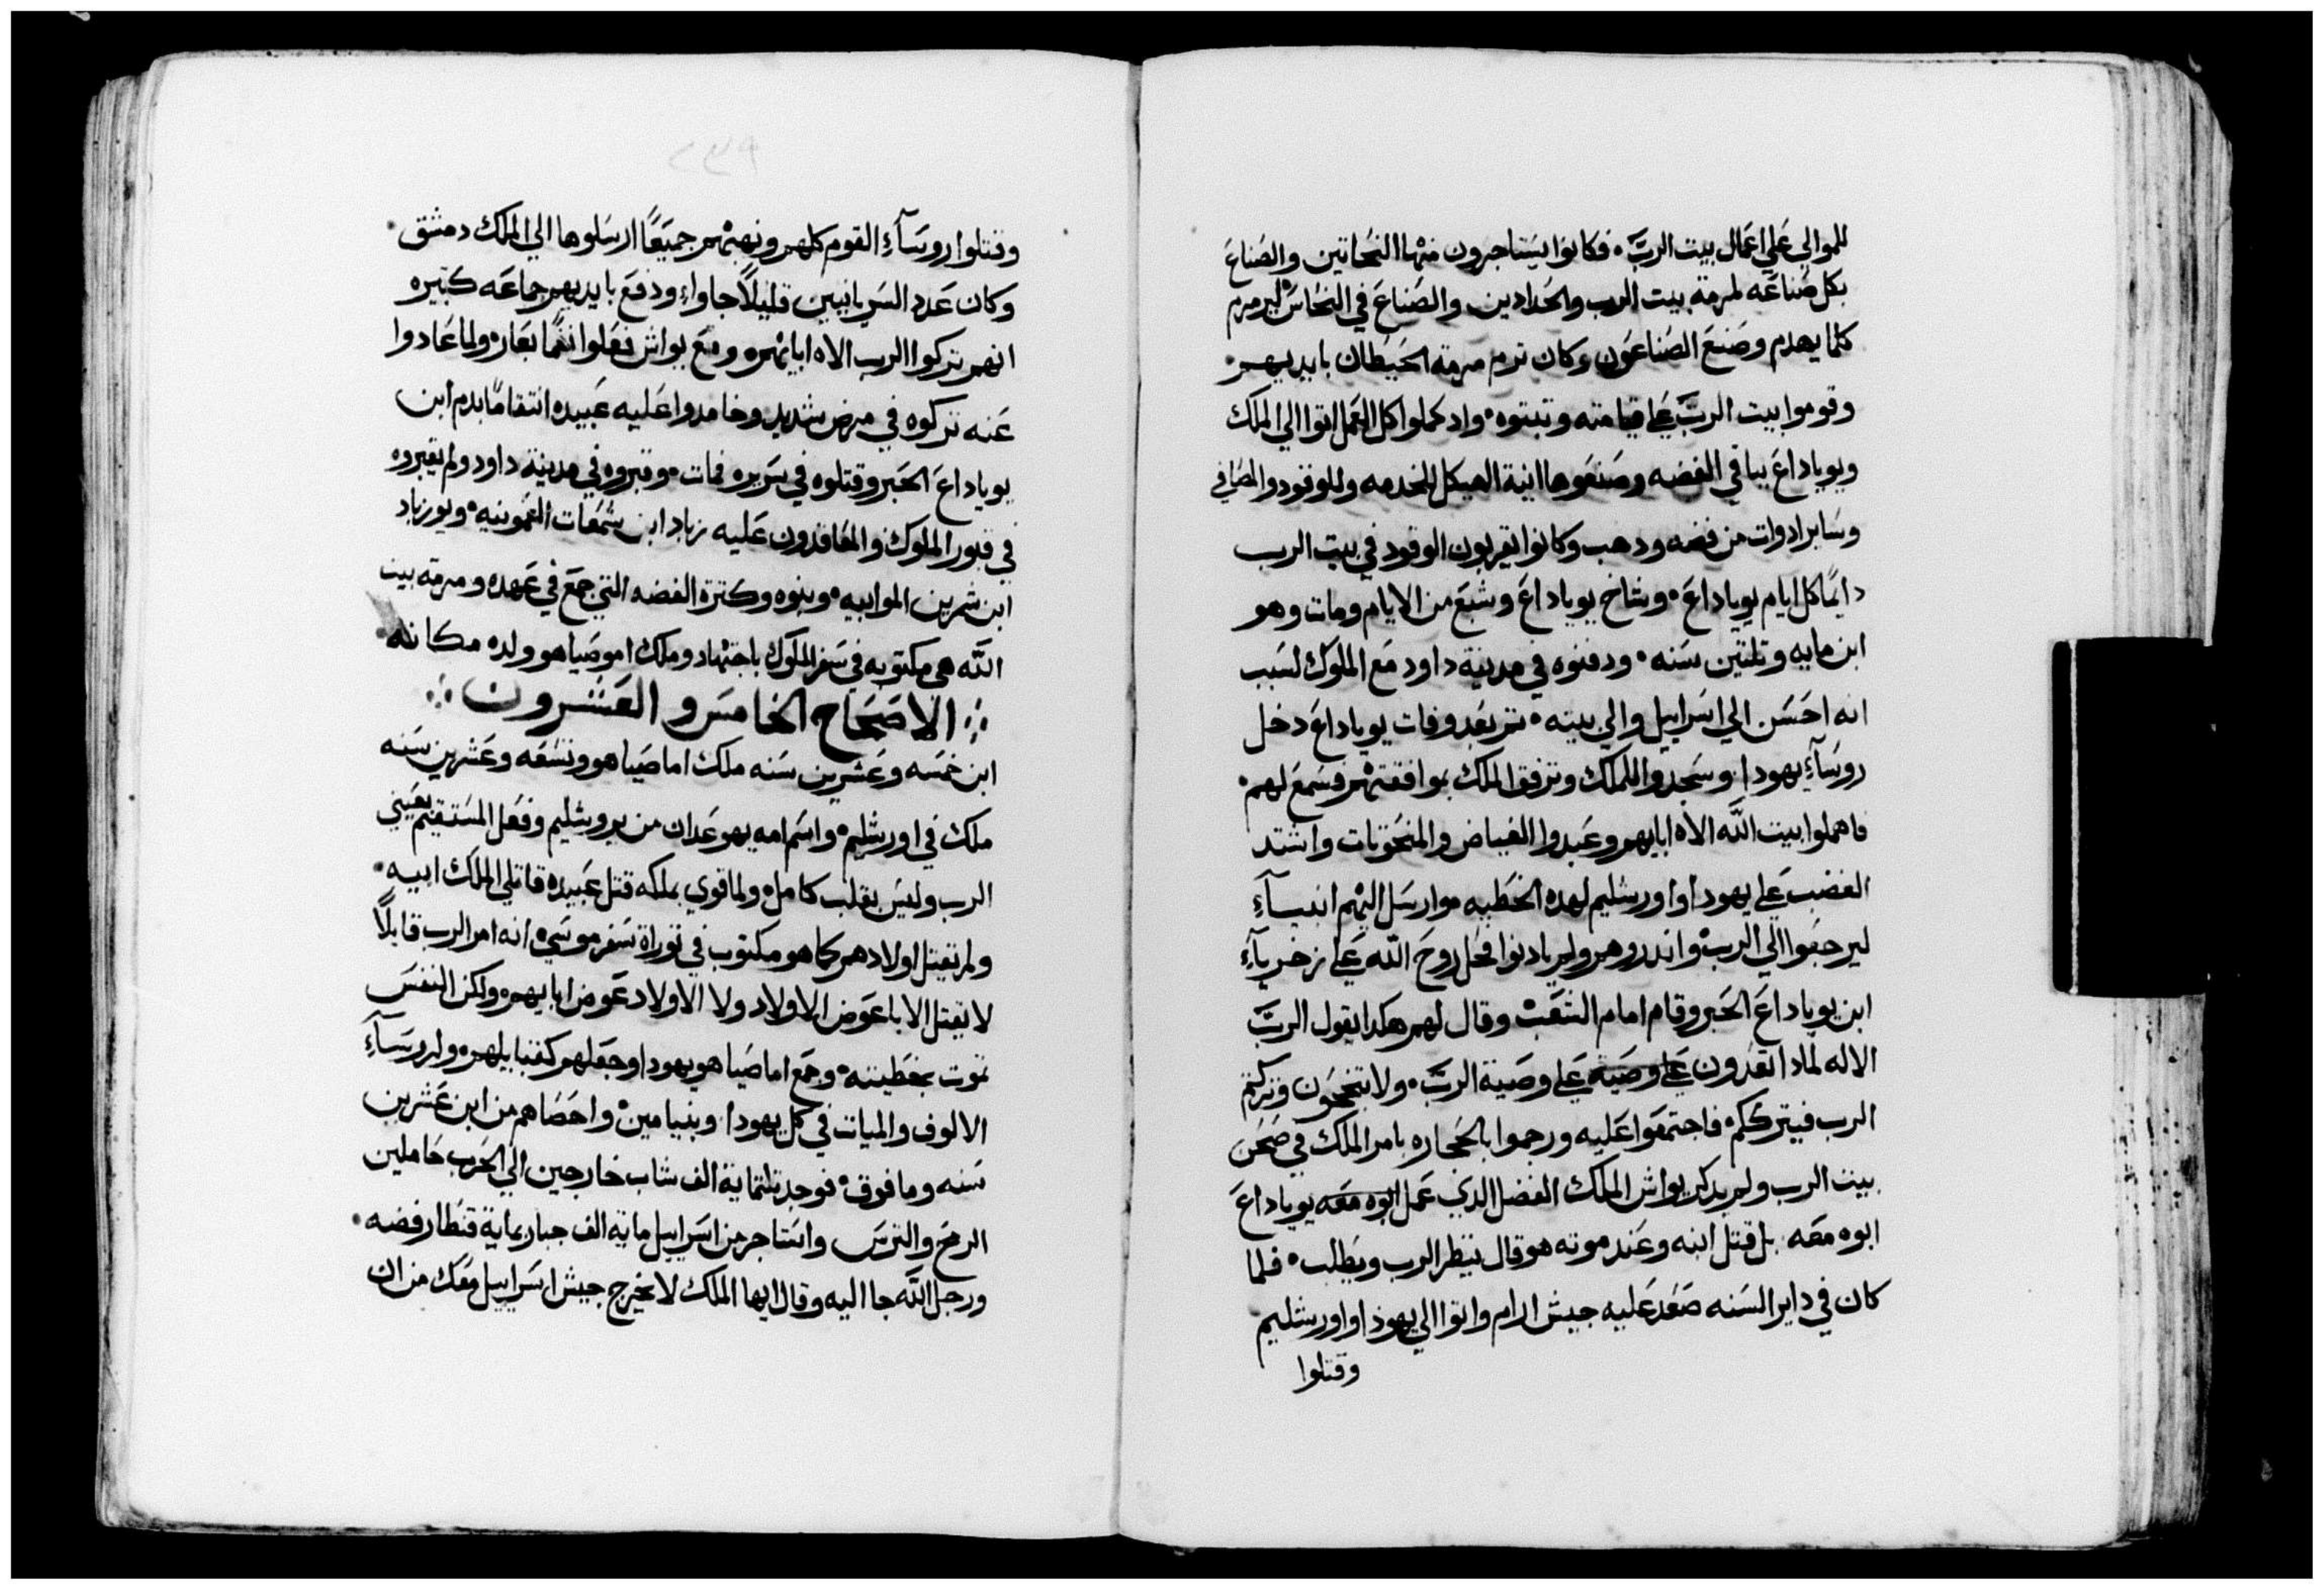 للموالي علي اعمال بيت الربّ٠ فكانوا يستاجرون منها النحاتين والصناع
بكل صناعه لمرمة بيت الرب والحدادين والصناع في النحاس ليرمرم
كلما يهدم وصنع الصناعون وكان ترم مرمة الحيطان بايديهم٠
وقوموا بيت الربّ علي قيامته وتبتوه٠ واد كملوا كل العمل اتوا الي الملك
ويوياداع بباقي الفضه وصنعوها انية الهيكل للخدمه وللوقود والمصافي
وساير ادوات من فضه ودهب وكانوا يقربون الوقود في بيت الرب
دايمًا كل ايام يوياداع٠ وشاخ يوياداع وشبع من الايام ومات وهو
ابن مايه وتلتين سنه٠ ودفنوه في مدينة داود مع الملوك لسبب
انه احسن الي اسراييل والي بيته٠ تم بعد وفات يوياداع دخل
روسآء يهودا وسجدوا للملك وترفق الملك بموافقتهم فسمع لهم٠
فاهملوا بيت اللّه الاه ابايهم وعبدوا الغياض والمنحوتات واشتد
الغضب علي يهودا واورشليم لهده الخطيه موارسل اليهم انبيآء
ليرجعوا الي الرب٠ واندروهم ولم يادنوا فحل روح اللّه علي زخريآء
ابن يوياداع الحبر وقام امام الشعب وقال لهم هكدا يقول الربّ
الاله لمادا تعدون علي وصية علي وصية الربّ٠ ولا تنجحون وتركتم
الرب فيترككم٠ فاجتمعوا عليه ورجموا بالحجاره بامر الملك في صحن
بيت الرب ولم يدكر يواش الملك الفضل الدي عمل ابوه معه يوياداع
ابوه معه بل قتل ابنه وعند موته هو قال ينظر الرب ويطلب٠ فلما
كان في داير السنه صعد عليه جيش ارام واتوا الي يهودا واورشليم
وقتلوا
٢٣٩
وقتلوا روسآء القوم كلهم ونهبتهم جميعًا ارسلوها الي الملك دمشق٠
وكان عدد السريانيين قليلاً جاواء ودفع بايديهم جماعه كتيره
انهم تركوا الرب الاه ابايهم٠ ومع يواش فعلوا نقمًا بعار٠ ولما عادوا
عنه تركوه في مرض شديد وخامدوا عليه عبيده انتقامًا بدم ابن
يوياداع الحبر وقتلوه في سريره فمات٠ وقبروه في مدينة داود ولم يقبروه
في قبور الملوك والمعاقدون عليه زباد ابن شمعات العمونيه٠ ويوزباد
ابن شمرين الموابيه٠ وبنوه وكترة الفضه التي جمع في عهده ومرمة بيت
اللّه هي مكتوبه في سفر الملوك باجتهاد وملك اموصياهو ولده مكانه٠
الاصحاح الخامس والعشرون
ابن خمسه وعشرين سنه ملك اماصياهو وتسعه وعشرين سنه
ملك في اورشليم٠ واسم امه يهوعدان من يروشليم وفعل المستقيم بعيني
الرب وليس بقلب كامل٠ ولما قوي بملكه قتل عبيده قاتلي الملك ابيه٠
ولم يقتل اولادهم كما هو مكتوب في توراة سفر موسي٠ انه امر الرب قايلاً
لا تقتل الابا عوض الاولاد ولا الاولاد عوض ابايهم٠ ولكن النفس
تموت بخطيته٠ وجمع اماصياهو يهودا وجعلهم كقبايلهم٠ ولروسآء
الالوف والميات في كل يهودا وبنيامين٠ واحصاهم من ابن عشرين
سنه وما فوق٠ فوجد تلتماية الف شاب خارجين الي الحرب حاملين
الرمح والترس واستاجر من اسراييل ماية الف جبار بماية قنطار فضه٠
ورجل اللّه جا اليه وقال ايها الملك لا يخرج جيش اسراييل معك من ان